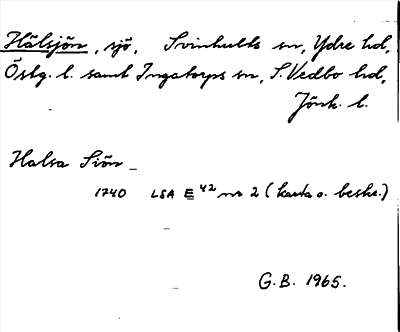 Hälsjön, sjö, Svinhults sn, Ydre hd,
Östg. l. samt Ingatorps sn, S. Vedbo hd,
Jönk. l.
Halsa Siön
1740 LSA E 42 nr 2 (karta o. beskr.)
G.B. 1965.